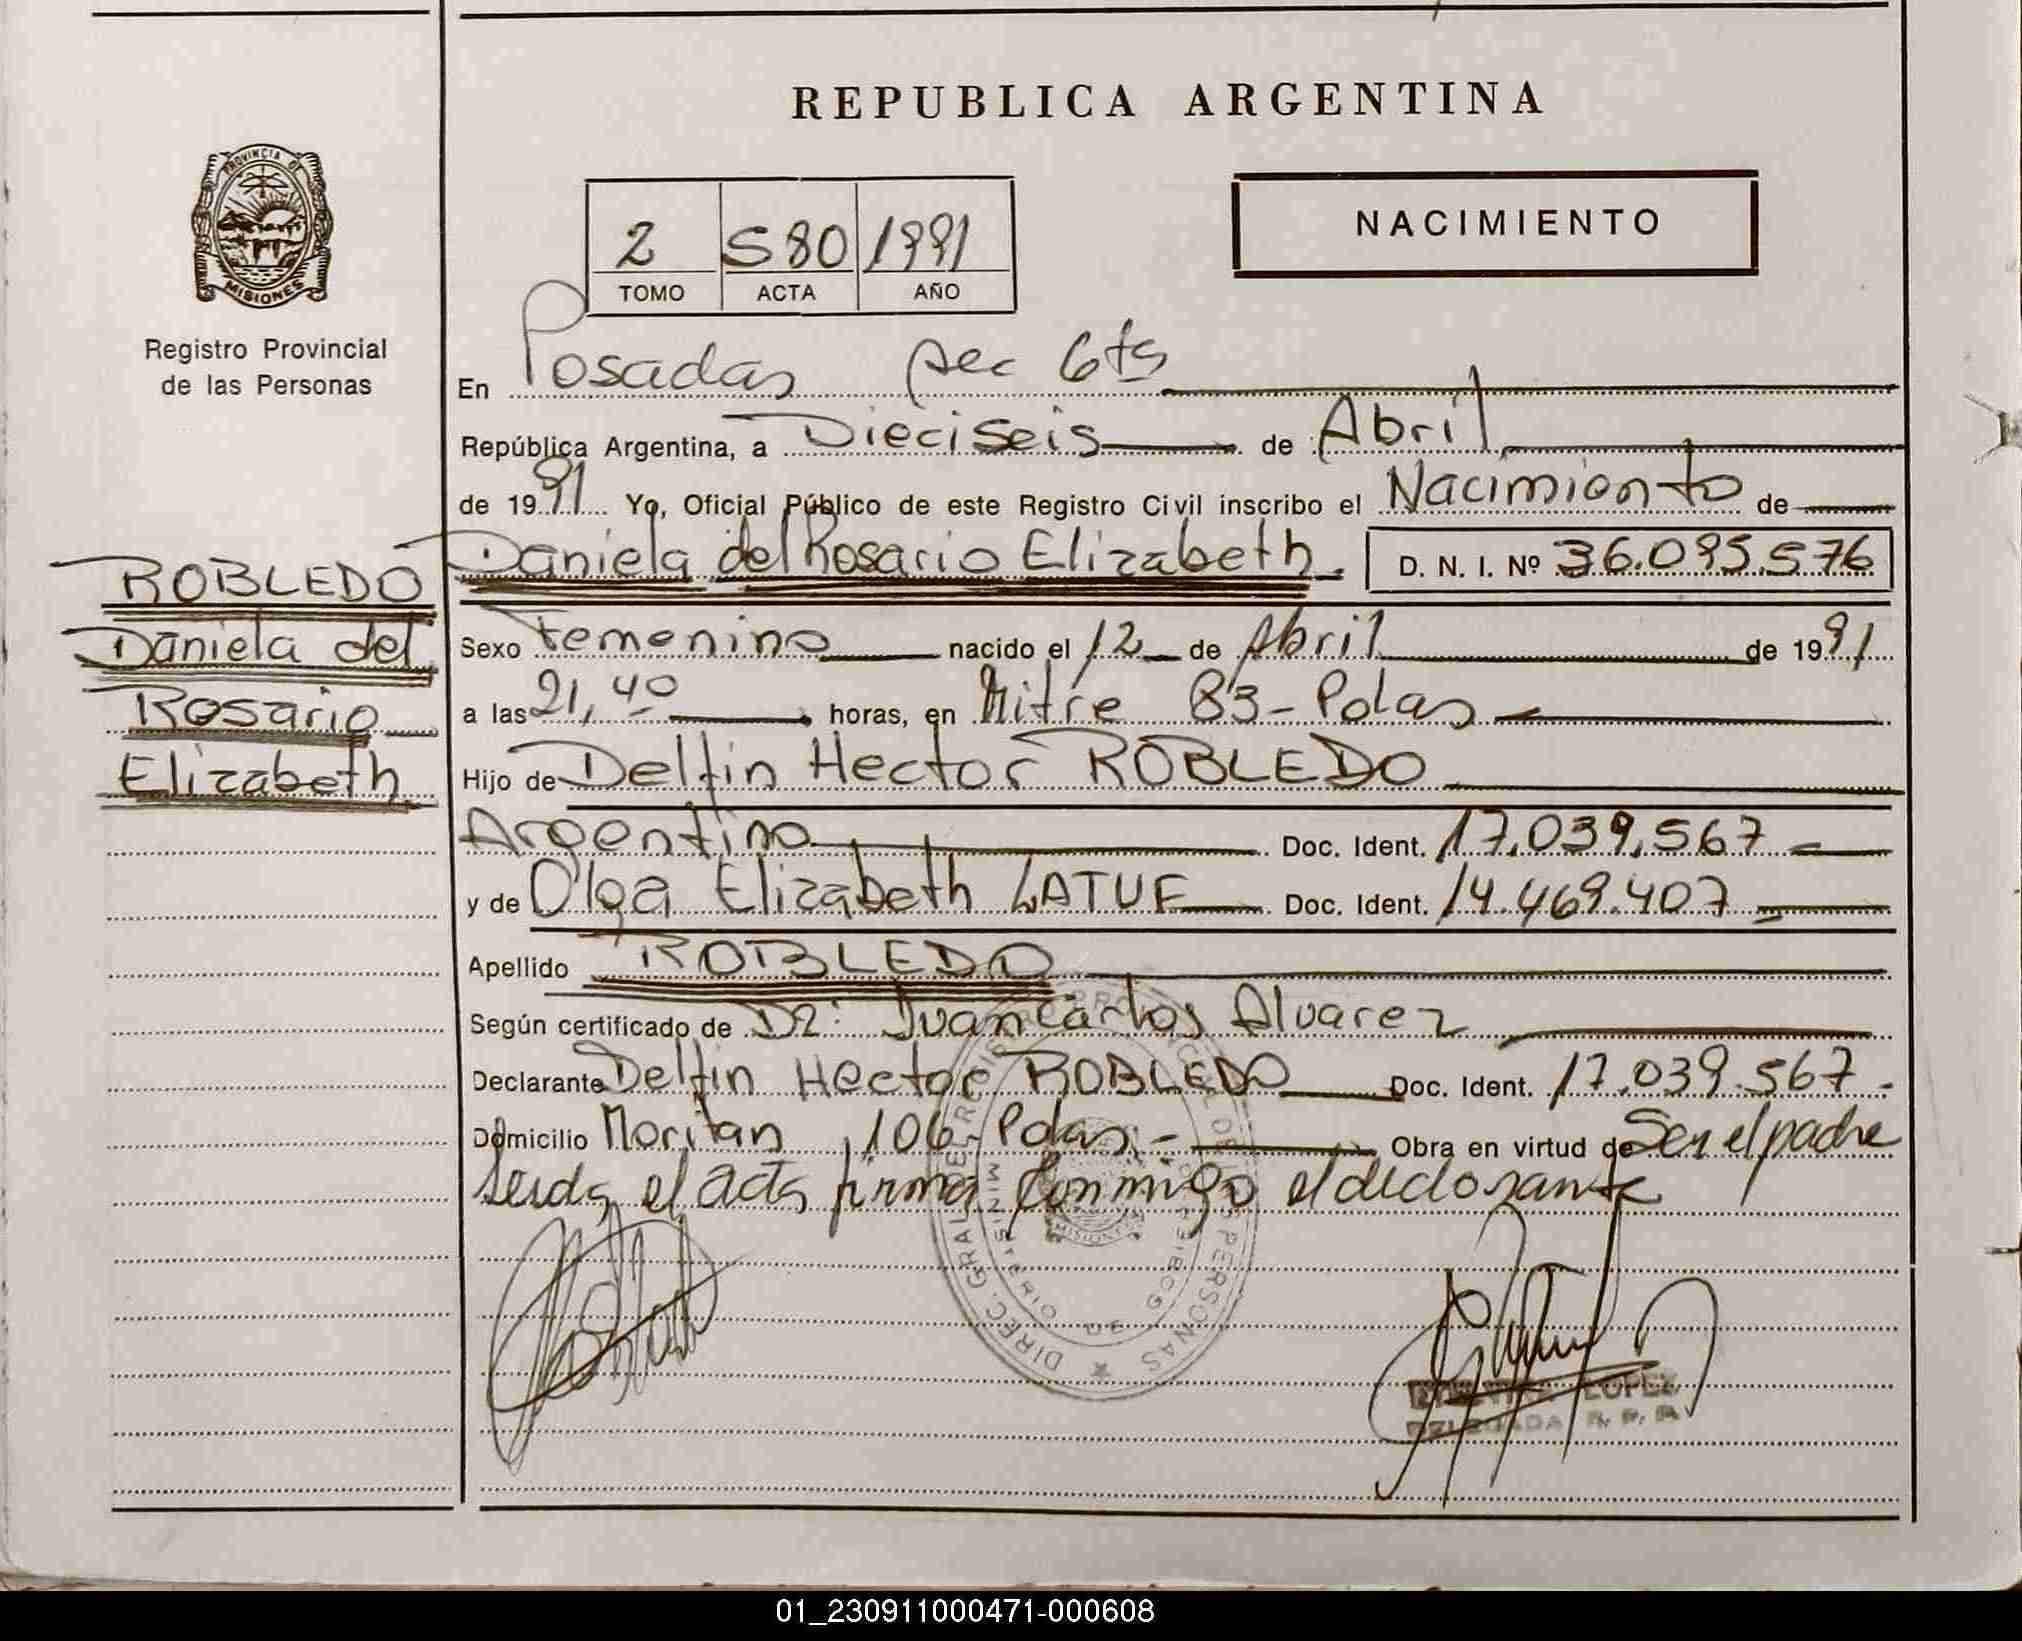 REPUBLICA ARGENTINA
PROVINCIA DE
MISIONES
Registro Provincial
de las Personas
NACIMIENTO
2 580 1991
TOMO ACTA AÑO
En Posadas sec 6ta
República Argentina, a Dieciseis de Abril
de 1991 Yo, Oficial Público de este Registro Civil inscribo el Nacimiento de
Daniela del Rosario Elizabeth. D. N. I. Nº 36.095.576
ROBLEDO
Daniela del
Rosario
Elizabeth
Sexo Femenino nacido el 12 de Abril de 1991
a las 21,40 horas, en Mitre 83- Pdas
Hijo de Delfin Hector ROBLEDO
Argentino Doc. Ident. 17.039.567
y de Olga Elizabeth LATUF Doc. Ident. 14.469.407
Apellido ROBLEDO
Según certificado de Dr: Juan Carlos Alvarez
Declarante Delfin Hector ROBLEDO Doc. Ident. 17.039.567.
Domicilio 106, Pdas.- Obra en virtud de Ser el padre
Leida el acta firma conmigo el declarante
DIREC. GRAL DE PERSONAS
MINIST DE GOBIERNO
LOPEZ
DELEGADA R. P. P.
01_230911000471-000608